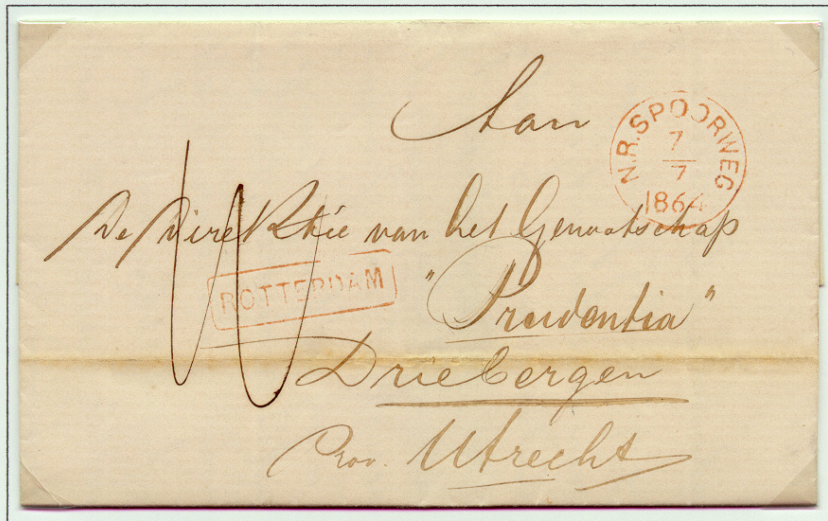 Aan
N.R. SPOORWEG
7
7
1864
De Direktie van het Genootschap
ROTTERDAM
"Prudentia"
Driebergen
Prov. Utrecht